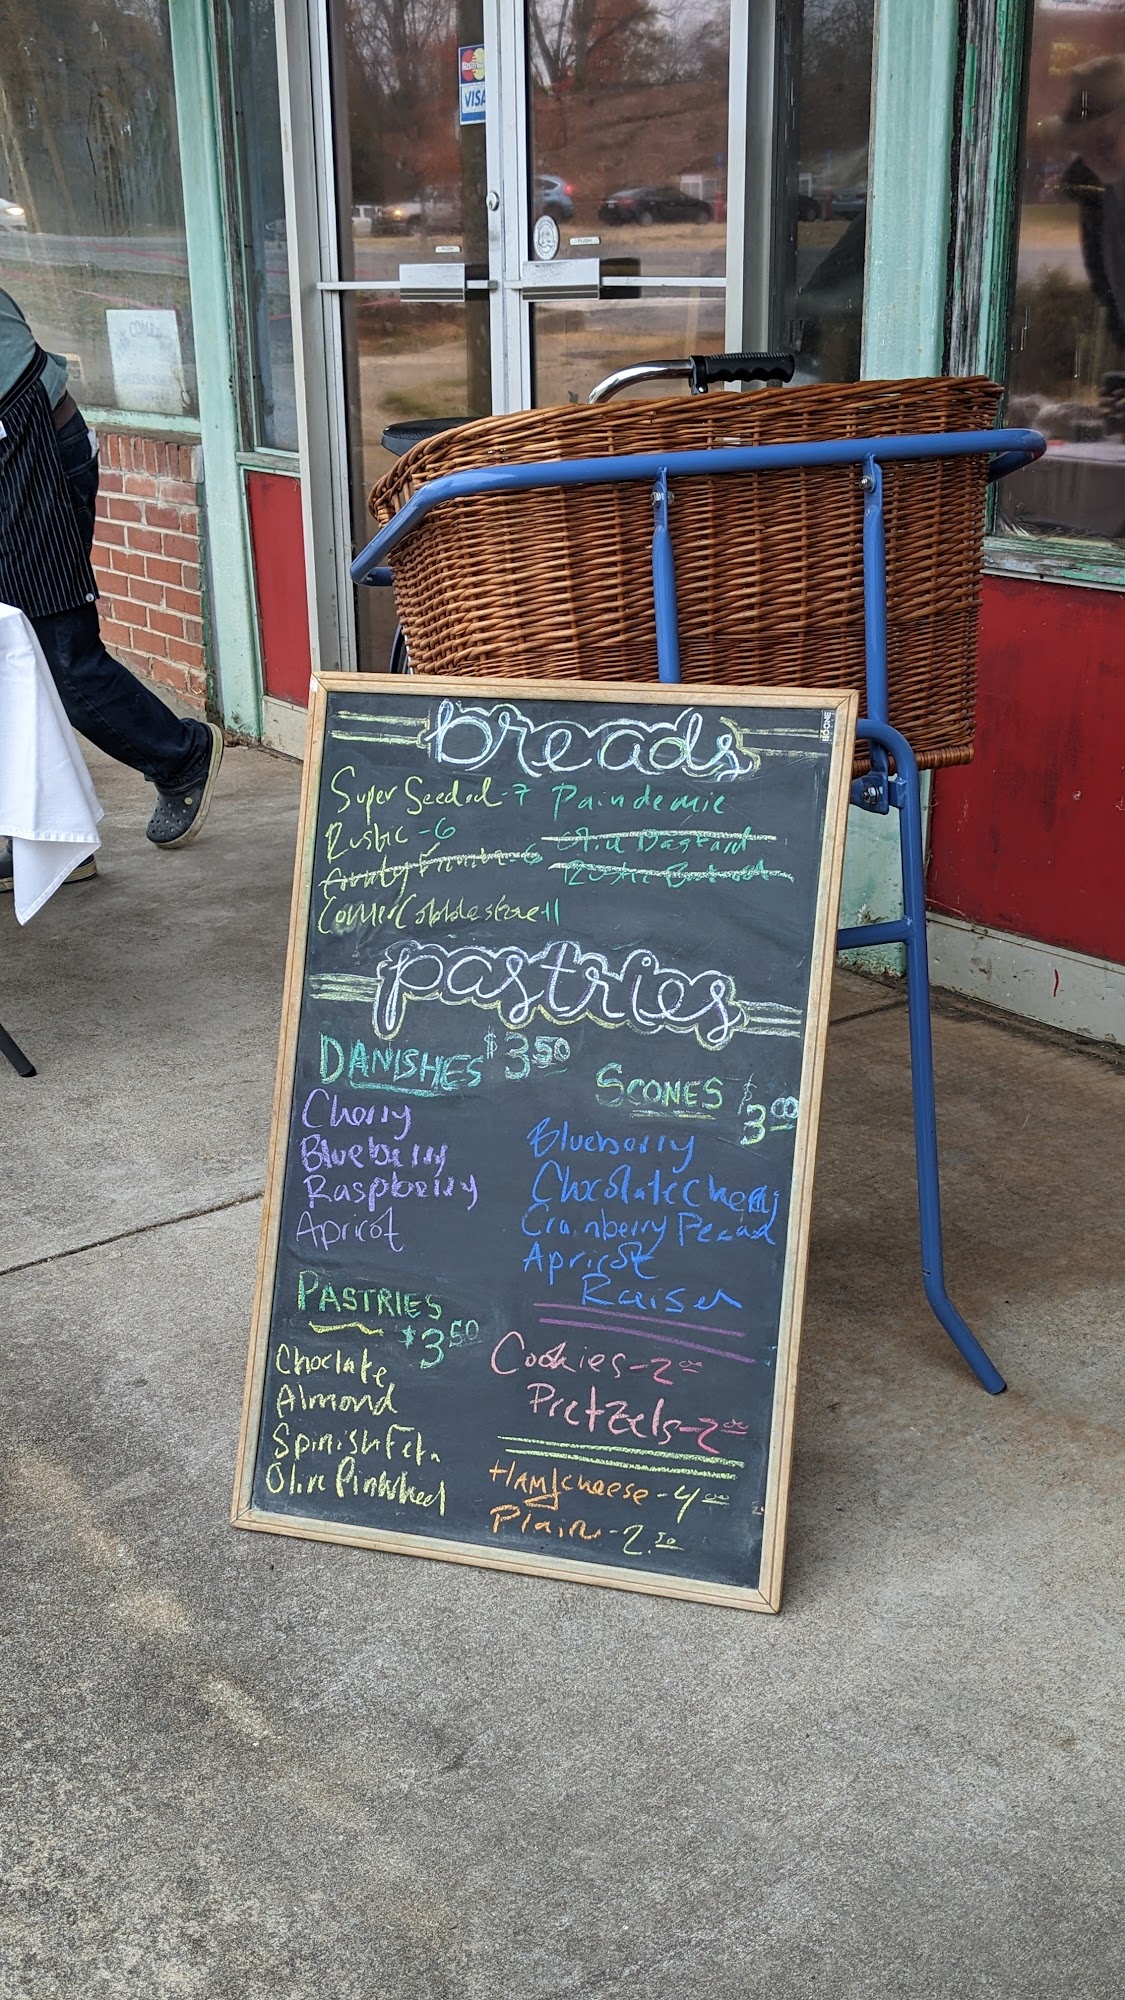 VISA
PUSH
PUSH
COME
NOOR
breads
Super Seeded-7
Rustic-6
Paindemic
pastries
DANISHES $3.50
Cherry
Blueberry
Raspberry
Apricot
SCONES $3.00
Blueberry
Chocolate Cherry
Cranberry Pecan
Apricot
Raisen
PASTRIES
$3.50
Choclate
Almond
Spinish Feta
Olive Pinwheel
Cookies-2.00
Pretzels-2.00
HAM/cheese-4.00
Plain-2.50